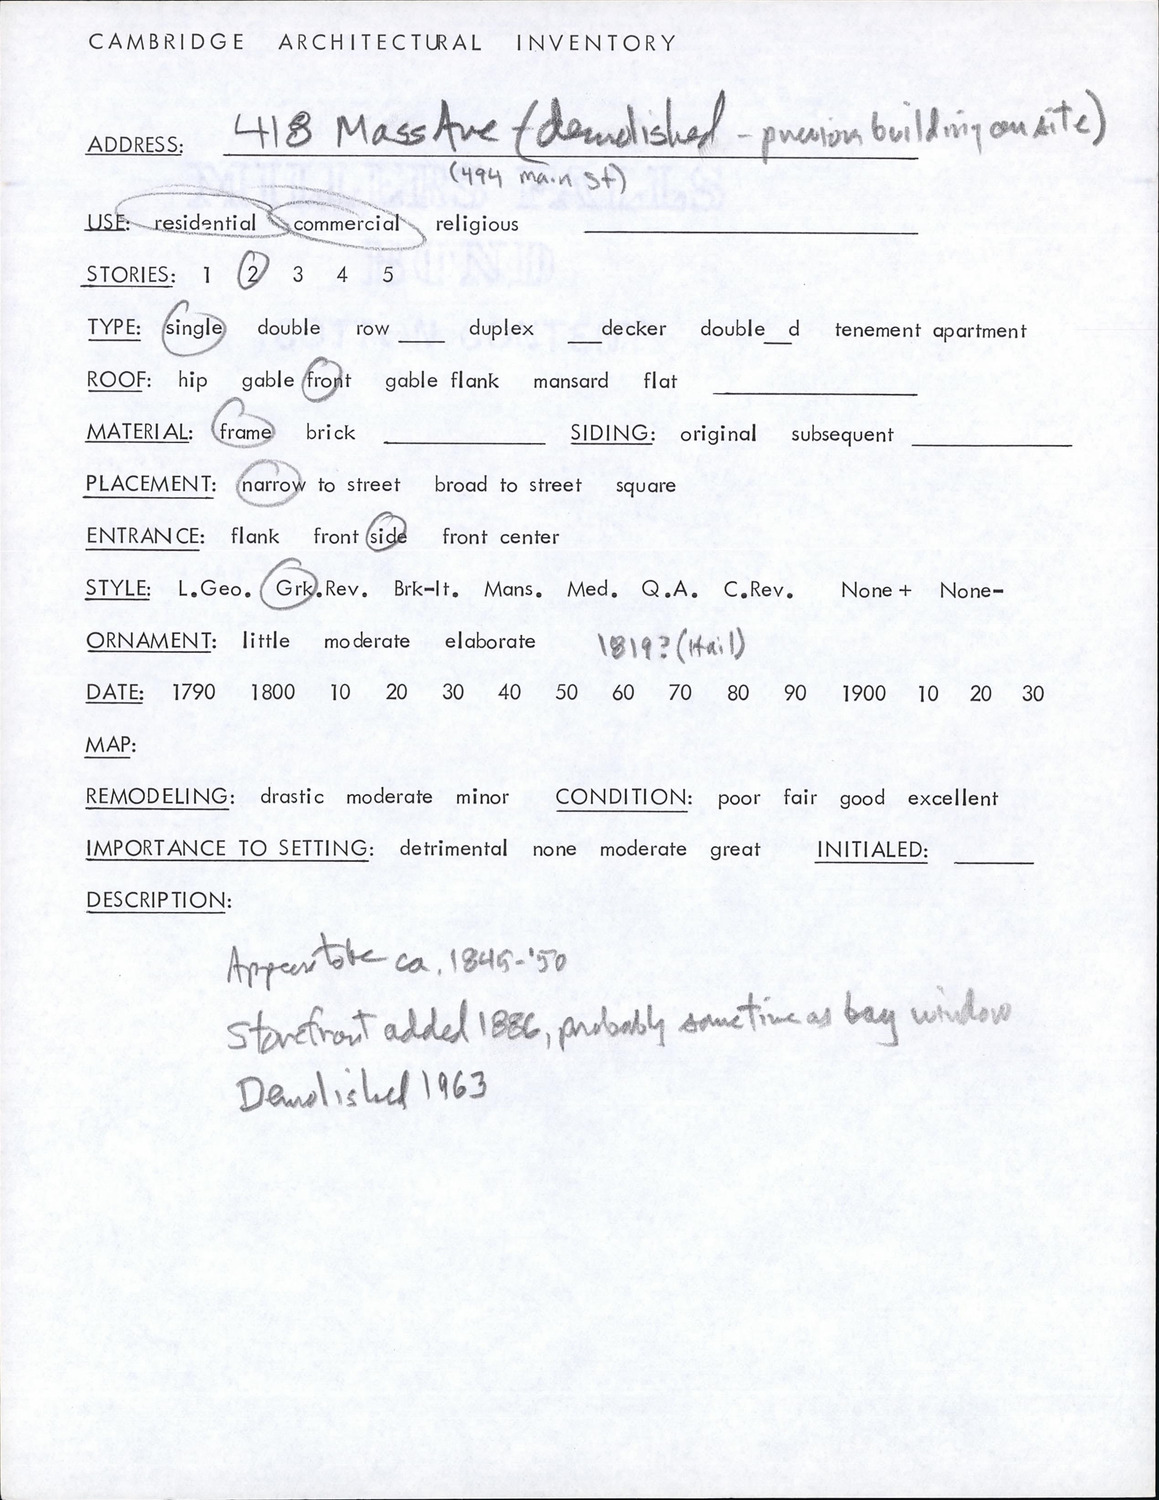 CAMBRIDGE ARCHITECTURAL INVENTORY
ADDRESS: 418 Mass Ave (demolished - previous building on site)
(494 main St)
USE: residential commercial religious
STORIES: 1 2 3 4 5
TYPE: single double row ____ duplex ___decker double__d tenement apartment
ROOF: hip gable front gable flank mansard flat
MATERIAL: frame brick SIDING: original subsequent
PLACEMENT: narrow to street broad to street square
ENTRANCE: flank front side front center
STYLE: L.Geo. Grk.Rev. Brk-It. Mans. Med. Q.A. C.Rev. None+ None-
ORNAMENT: little moderate elaborate 1819? (Hail)
DATE: 1790 1800 10 20 30 40 50 60 70 80 90 1900 10 20 30
MAP:
REMODELING: drastic moderate minor CONDITION: poor fair good excellent
IMPORTANCE TO SETTING: detrimental none moderate great INITIALED:
DESCRIPTION:
Appears to be ca. 1845-'50
Storefront added 1886, probably sometime as bay window
Demolished 1963